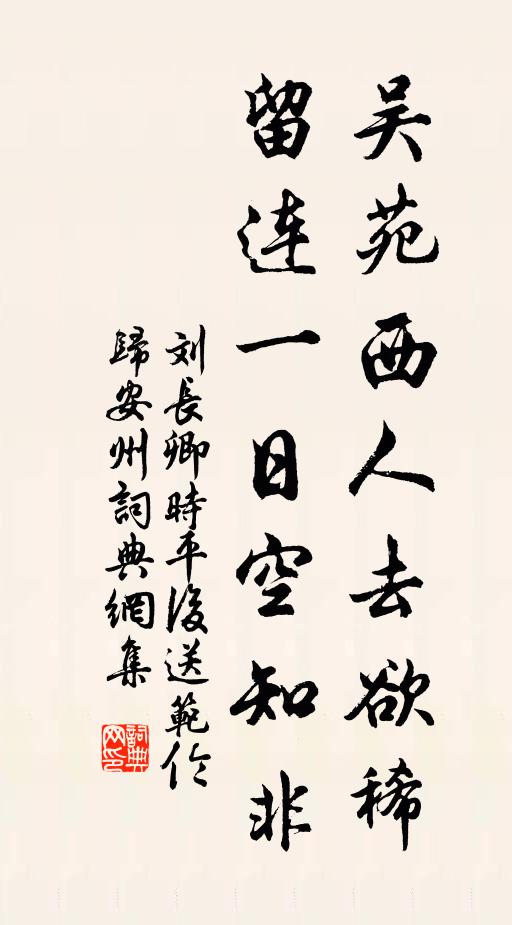 吴苑西人去欲稀
留连一日空知非
刘長卿時平後送範伦
歸安州詞典網集
詞典网印